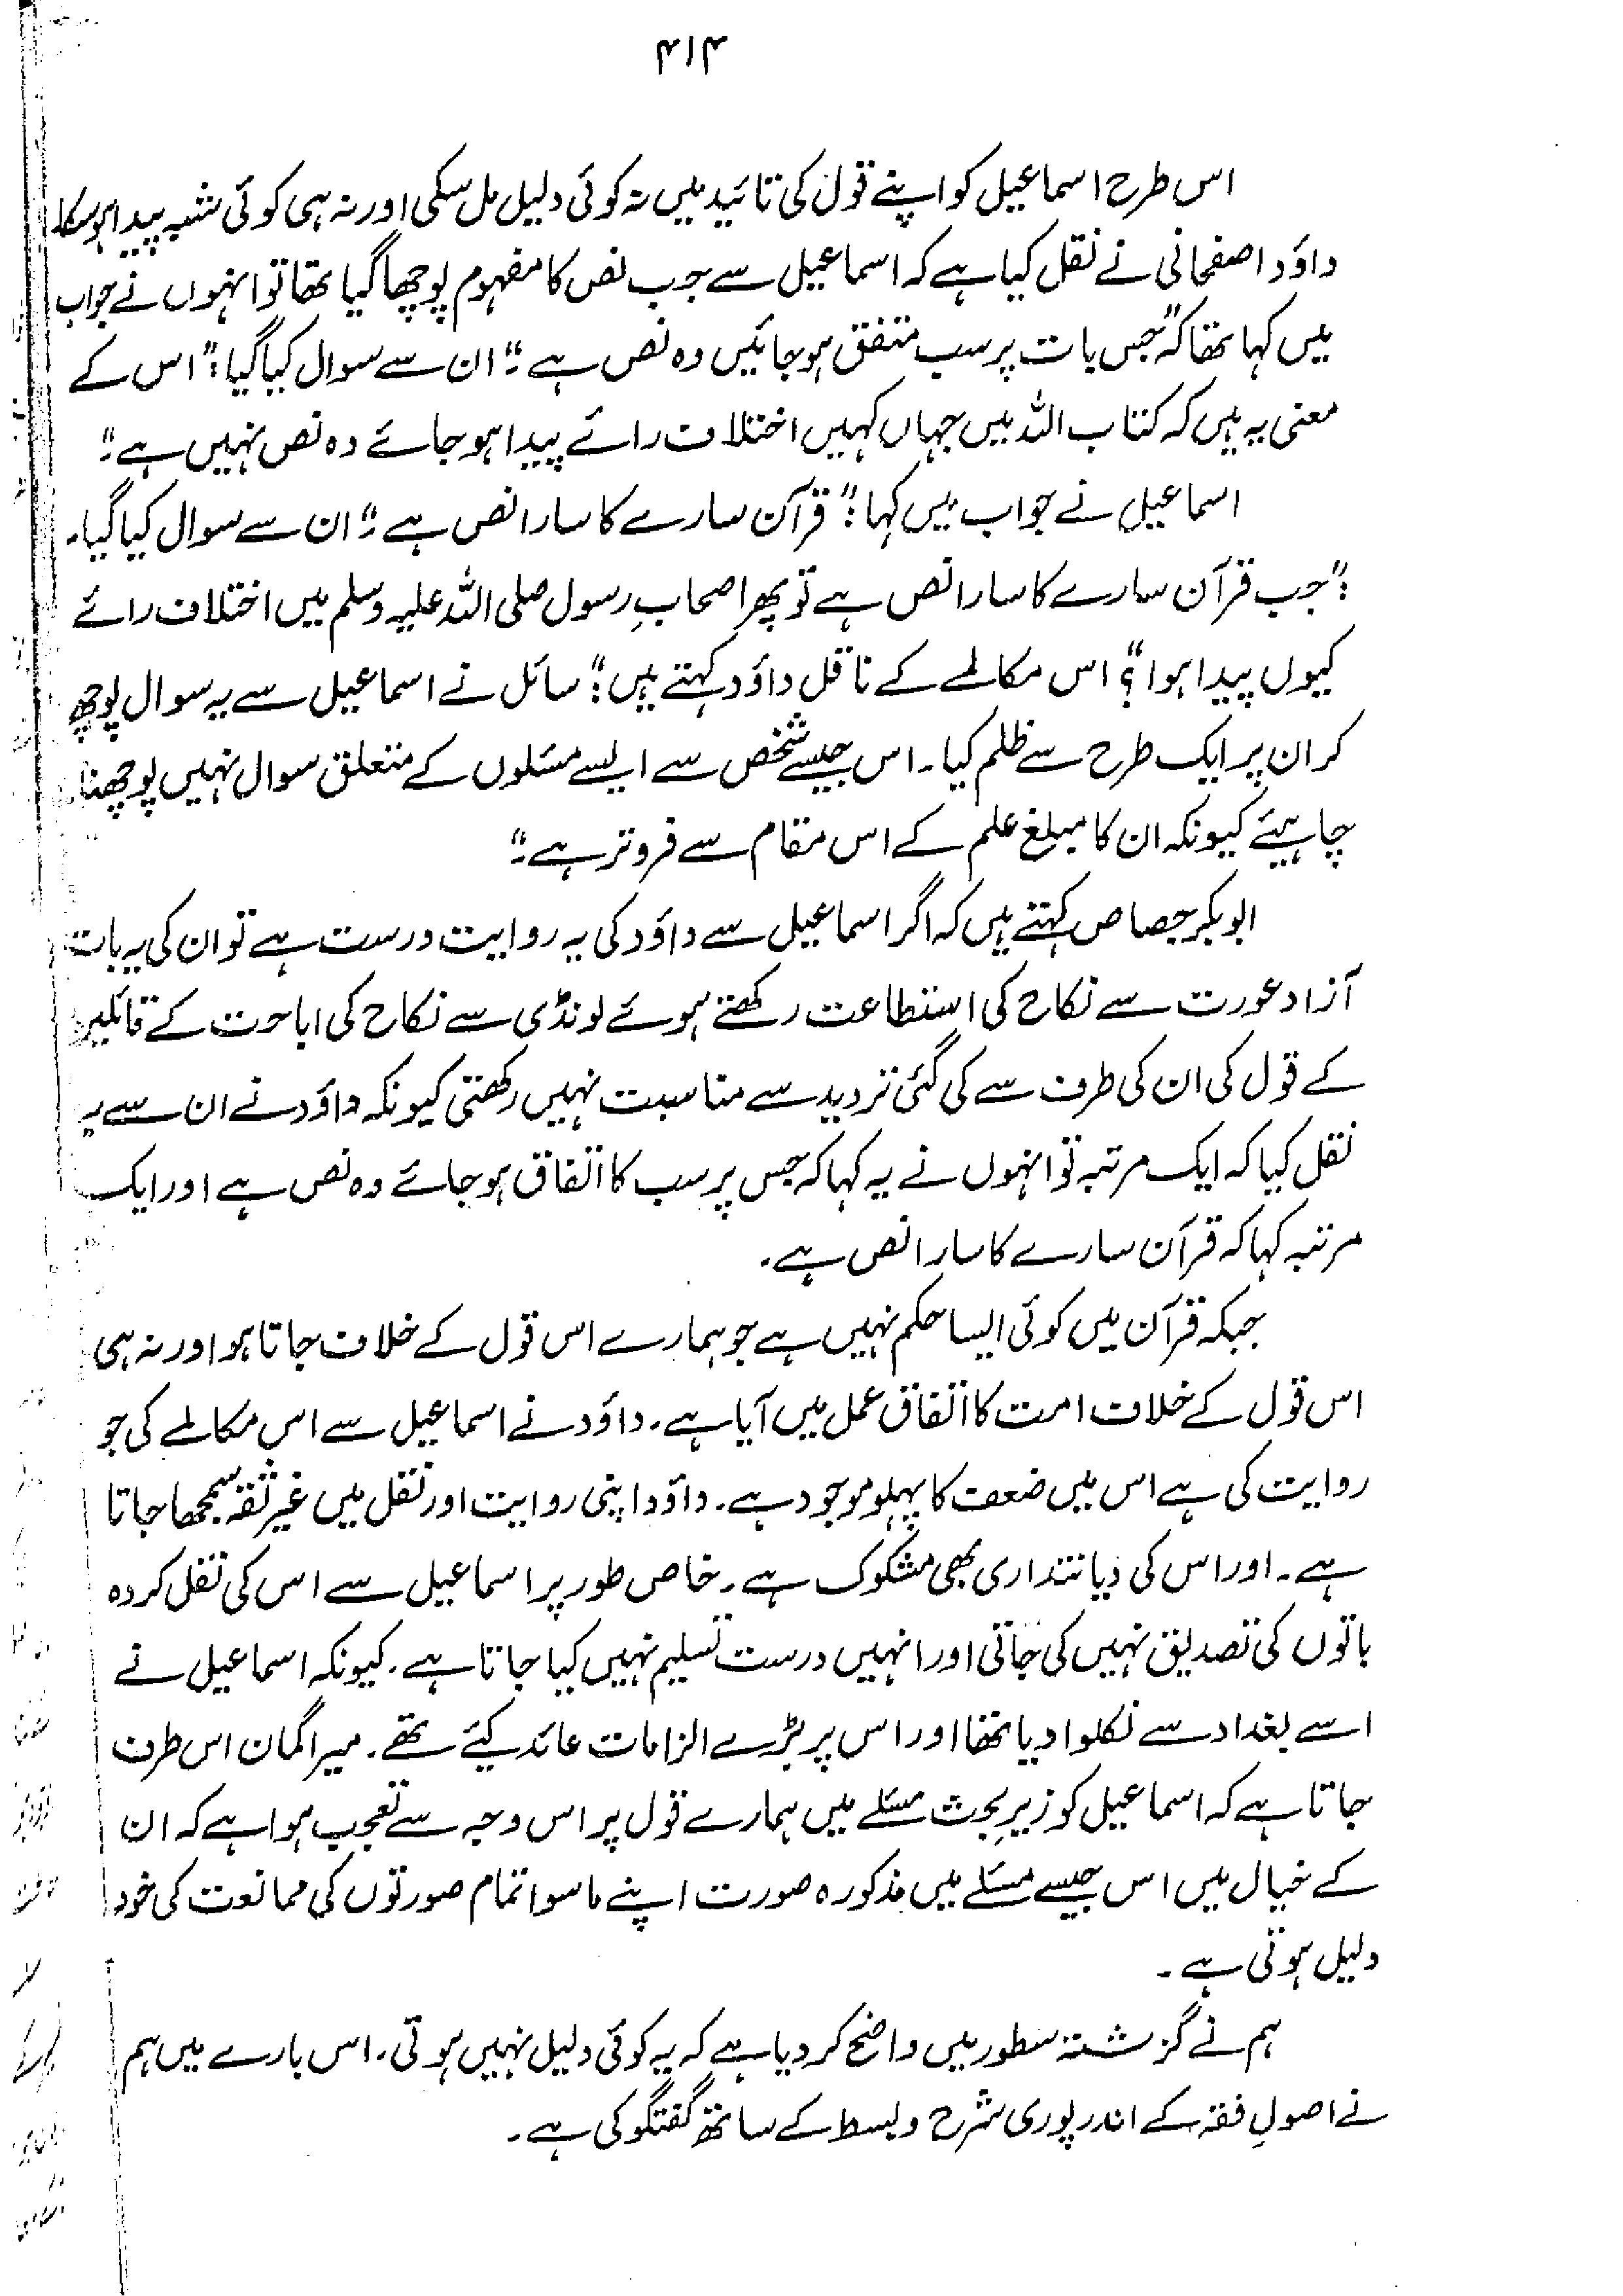 ۴۱۴
اس طرح اسماعیل کو اپنے قول کی تائید میں نہ کوئی دلیل مل سکی اور نہ ہی کوئی شبہ پیدا ہو سکا
داؤد اصفہانی نے نقل کیا ہے کہ اسماعیل سے جب نص کا مفہوم پوچھا گیا تھا تو انہوں نے جواب
میں کہا تھا کہ "جس بات پر سب متفق ہو جائیں وہ نص ہے"۔ ان سے سوال کیا گیا: "اس کے
معنی یہ ہیں کہ کتاب اللہ میں جہاں کہیں اختلاف رائے پیدا ہو جائے وہ نص نہیں ہے"۔
اسماعیل نے جواب میں کہا: "قرآن سارے کا سارا نص ہے"۔ ان سے سوال کیا گیا۔
: "جب قرآن سارے کا سارا نص ہے تو پھر اصحابِ رسول صلی اللہ علیہ وسلم میں اختلاف رائے
کیوں پیدا ہوا"؟ اس مکالمے کے ناقل داؤد کہتے ہیں: "سائل نے اسماعیل سے یہ سوال پوچھ
کر ان پر ایک طرح سے ظلم کیا۔ اس جیسے شخص سے ایسے مسئلوں کے متعلق سوال نہیں پوچھنا
چاہیئے کیونکہ ان کا مبلغ علم کے اس مقام سے فروتر ہے"۔
ابوبکر جصاص کہتے ہیں کہ اگر اسماعیل سے داؤد کی یہ روایت درست ہے تو ان کی یہ بات
آزاد عورت سے نکاح کی استطاعت رکھتے ہوئے لونڈی سے نکاح کی اباحت کے قائلین
کے قول کی ان کی طرف سے کی گئی تردید سے مناسبت نہیں رکھتی کیونکہ داؤد نے ان سے یہ
نقل کیا کہ ایک مرتبہ تو انہوں نے یہ کہا کہ جس پر سب کا اتفاق ہو جائے وہ نص ہے اور ایک
مرتبہ کہا کہ قرآن سارے کا سارا نص ہے۔
جبکہ قرآن میں کوئی ایسا حکم نہیں ہے جو ہمارے اس قول کے خلاف جاتا ہو اور نہ ہی
اس قول کے خلاف امت کا اتفاق عمل میں آیا ہے۔ داؤد نے اسماعیل سے اس مکالمے کی جو
روایت کی ہے اس میں ضعف کا پہلو موجود ہے۔ داؤد اپنی روایت اور نقل میں غیر ثقہ سمجھا جاتا
ہے۔ اور اس کی دیانتداری بھی مشکوک ہے۔ خاص طور پر اسماعیل سے اس کی نقل کردہ
باتوں کی تصدیق نہیں کی جاتی اور انہیں درست تسلیم نہیں کیا جاتا ہے۔ کیونکہ اسماعیل نے
اسے بغداد سے نکلوا دیا تھا اور اس پر بڑے الزامات عائد کیئے تھے۔ میرا گمان اس طرف
جاتا ہے کہ اسماعیل کو زیرِ بحث مسئلے میں ہمارے قول پر اس وجہ سے تعجب ہوا ہے کہ ان
کے خیال میں اس جیسے مسئلے میں مذکورہ صورت اپنے ماسوا تمام صورتوں کی ممانعت کی خود
دلیل ہوتی ہے۔
ہم نے گزشتہ سطور میں واضح کر دیا ہے کہ یہ کوئی دلیل نہیں ہوتی۔ اس بارے میں ہم
نے اصولِ فقہ کے اندر پوری شرح و بسط کے ساتھ گفتگو کی ہے۔